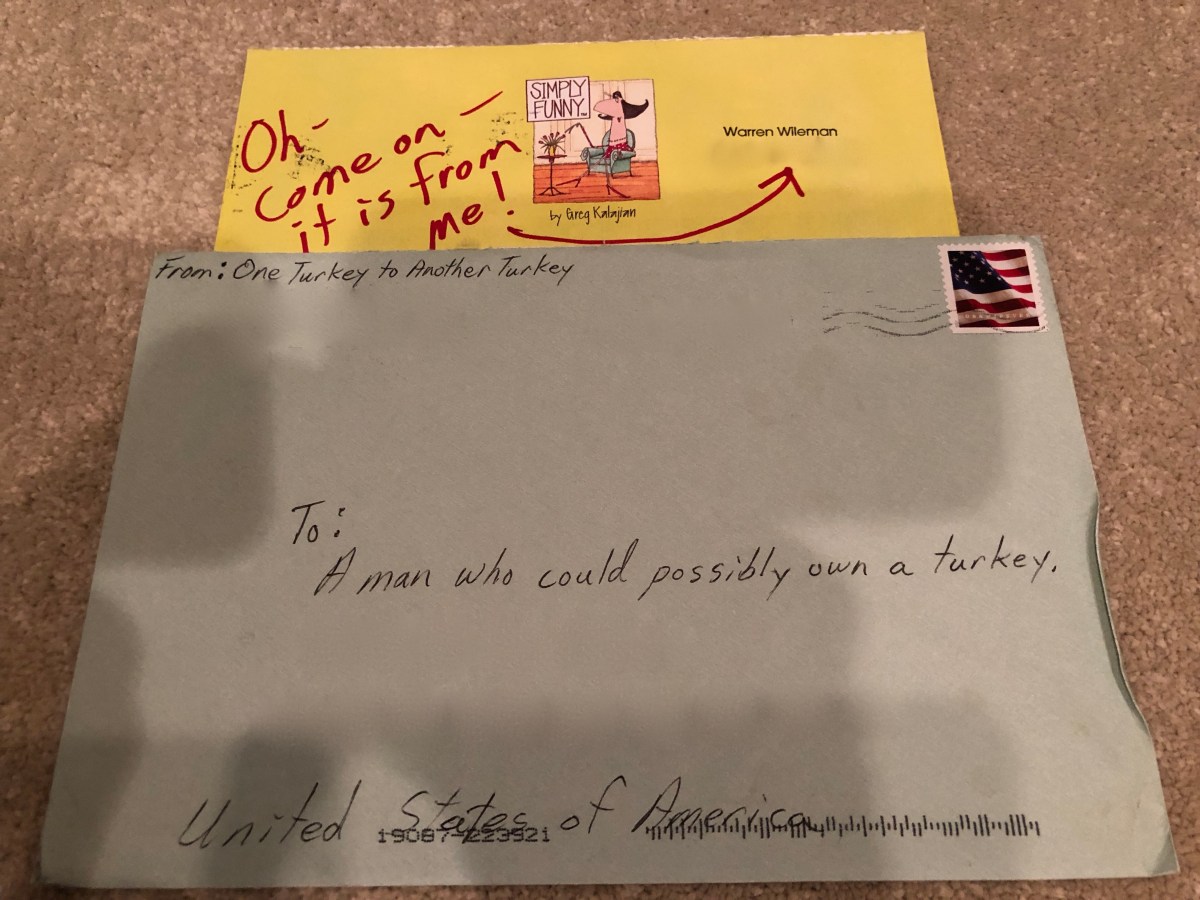 Oh-
come on -
it is from
me!
SIMPLY
FUNNY™
by Greg Kalajian
Warren Wileman
From: One Turkey to Another Turkey
To:
A man who could possibly own a turkey.
United States of America
19087-223921